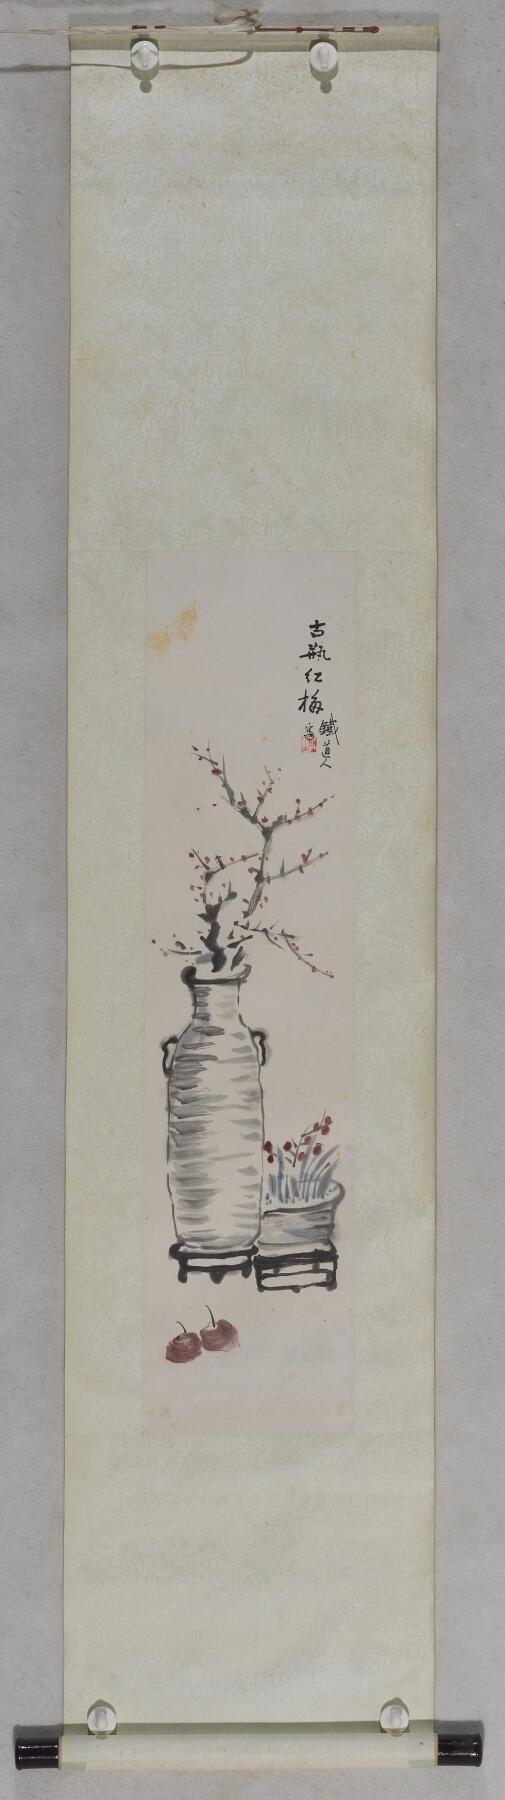 古瓶红梅
鐵道人